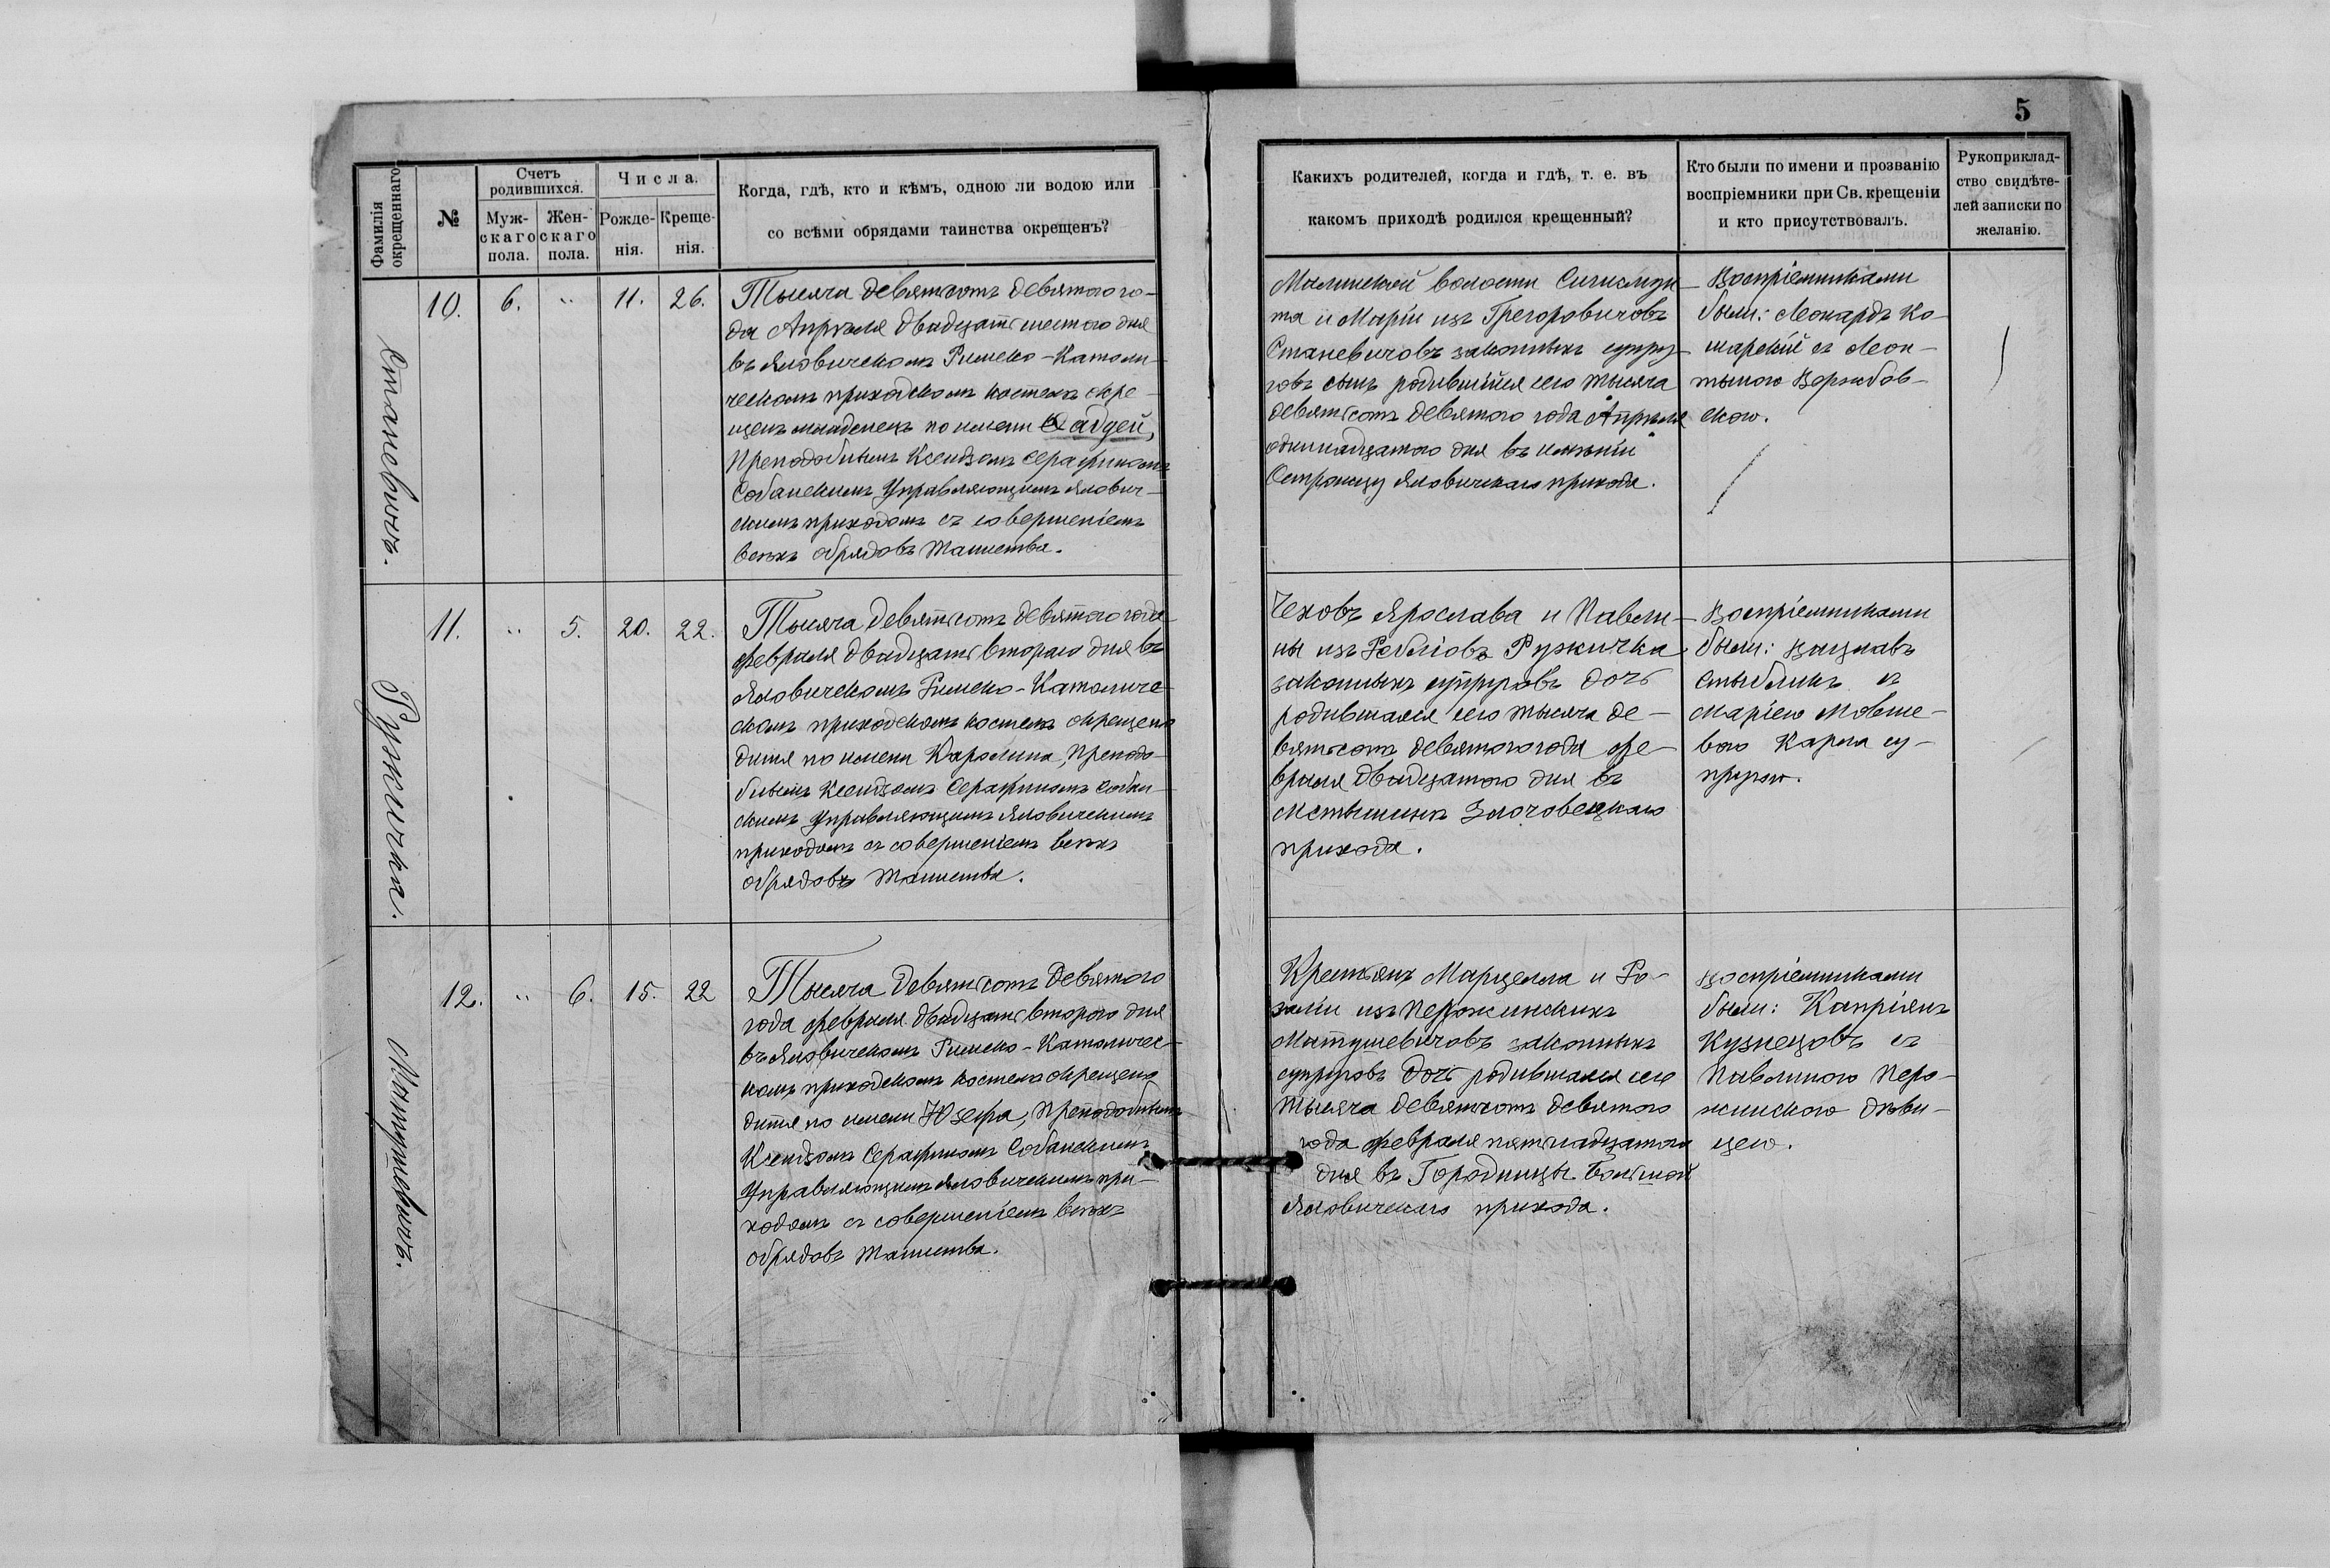 5
Фамилія окрещеннаго
№
Счетъ родившихся.
Муж-
скаго
пола.
Жен-
скаго
пола.
Числа.
Рожде-
нія.
Креще-
нія.
Когда, гдѣ, кто и кѣмъ, одною ли водою или
со всѣми обрядами таинства окрещенъ?
Какихъ родителей, когда и гдѣ, т. е. въ
какомъ приходѣ родился крещенный?
Кто были по имени и прозванію
воспріемники при Св. крещеніи
и кто присутствовалъ.
Рукоприклад-
ство свидѣте-
лей записки по
желанію.
Станевичъ.
10. 6. " 11. 26.
Тысяча девятьсотъ девятаго го-
да Апрѣля двадцать шестого дня
въ Яловичскомъ Римско-Католи-
ческомъ приходскомъ костелѣ окре-
щенъ младенецъ по имени Фаддей,
Преподобнымъ Ксендзомъ Серафиномъ
Собанскимъ Управляющимъ Ялович-
скимъ приходомъ съ совершеніемъ
всѣхъ обрядовъ Таинства.
Млинской волости Сигизмун-
та и Маріи изъ Грегоровичовъ
Станевичовъ законныхъ супру-
говъ сынъ родившійся сего тысяча
девятьсотъ девятого года Апрѣля
одинадцатого дня въ имѣніи
Яловичскаго прихода.
Воспріемниками
были: Леонардъ Ко-
марскій съ Леон-
тыною Воржбов-
скою.
Ружичка.
11. " 5. 20. 22.
Тысяча девятьсотъ девятого года
февраля двадцать второго дня въ
Яловичскомъ Римско-Католиче-
скомъ приходскомъ костелѣ окрещено
дитя по имени Каролина, Преподо-
бнымъ Ксендзомъ Серафиномъ Собан-
скимъ Управляющимъ Яловичскимъ
приходомъ съ совершеніемъ всѣхъ
обрядовъ Таинства.
Чеховъ Ярослава и Павли-
ны изъ Ружичка
законныхъ супруговъ дочь
родившаяся сего тысяча де-
вятьсотъ девятого года фе-
враля двадцатого дня въ
прихода.
Воспріемниками
были: Вацлавъ
съ
Маріею
Карла су-
пругою.
Матушевичъ.
12. " 6. 15. 22
Тысяча девятьсотъ девятого
года февраля двадцать второго дня
въ Яловичскомъ Римско-Католичес-
комъ приходскомъ костелѣ окрещено
дитя по имени Юзефа, Преподобнымъ
Ксендзомъ Серафиномъ Собанскимъ
Управляющимъ Яловичскимъ при-
ходомъ съ совершеніемъ всѣхъ
обрядовъ Таинства.
Крестьянъ Марцелла и Ро-
заліи изъ Пержинскихъ
Матушевичовъ законныхъ
супруговъ дочь родившаяся сего
тысяча девятьсотъ девятого
года февраля пятнадцатого
дня въ Городницы Большой
Яловичскаго прихода.
Воспріемниками
были: Капріянъ
Кузнецовъ съ
Павлиною Пер-
жинскою дѣви-
цею.